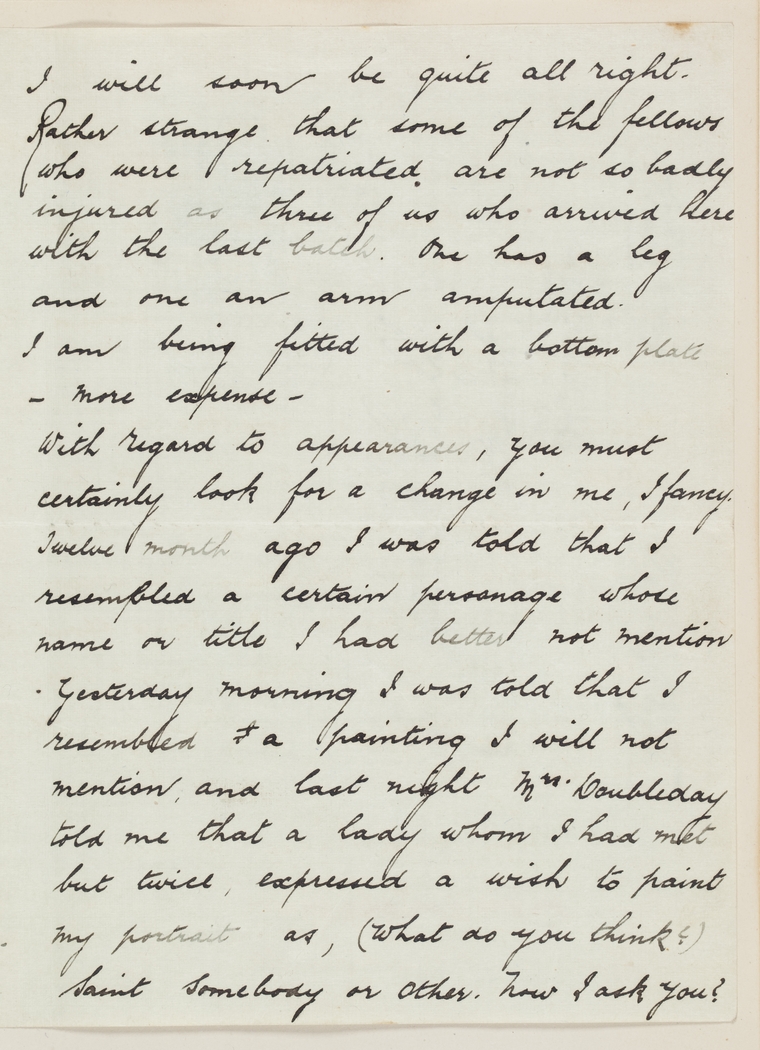 I will soon be quite all right.
Rather strange that some of the fellows
who were repatriated are not so badly
injured as three of us who arrived here
with the last batch. One has a leg
and one an arm amputated.
I am being fitted with a bottom plate
- more expense -
With regard to appearances, you must
certainly look for a change in me, I fancy.
Twelve month ago I was told that I
resembled a certain personage whose
name or title I had better not mention
. Yesterday morning I was told that I
resembled a painting I will not
mention, and last night Mrs. Doubleday
told me that a lady whom I had met
but twice, expressed a wish to paint
my portrait as, (What do you think?)
Saint Somebody or Other. Now I ask you?